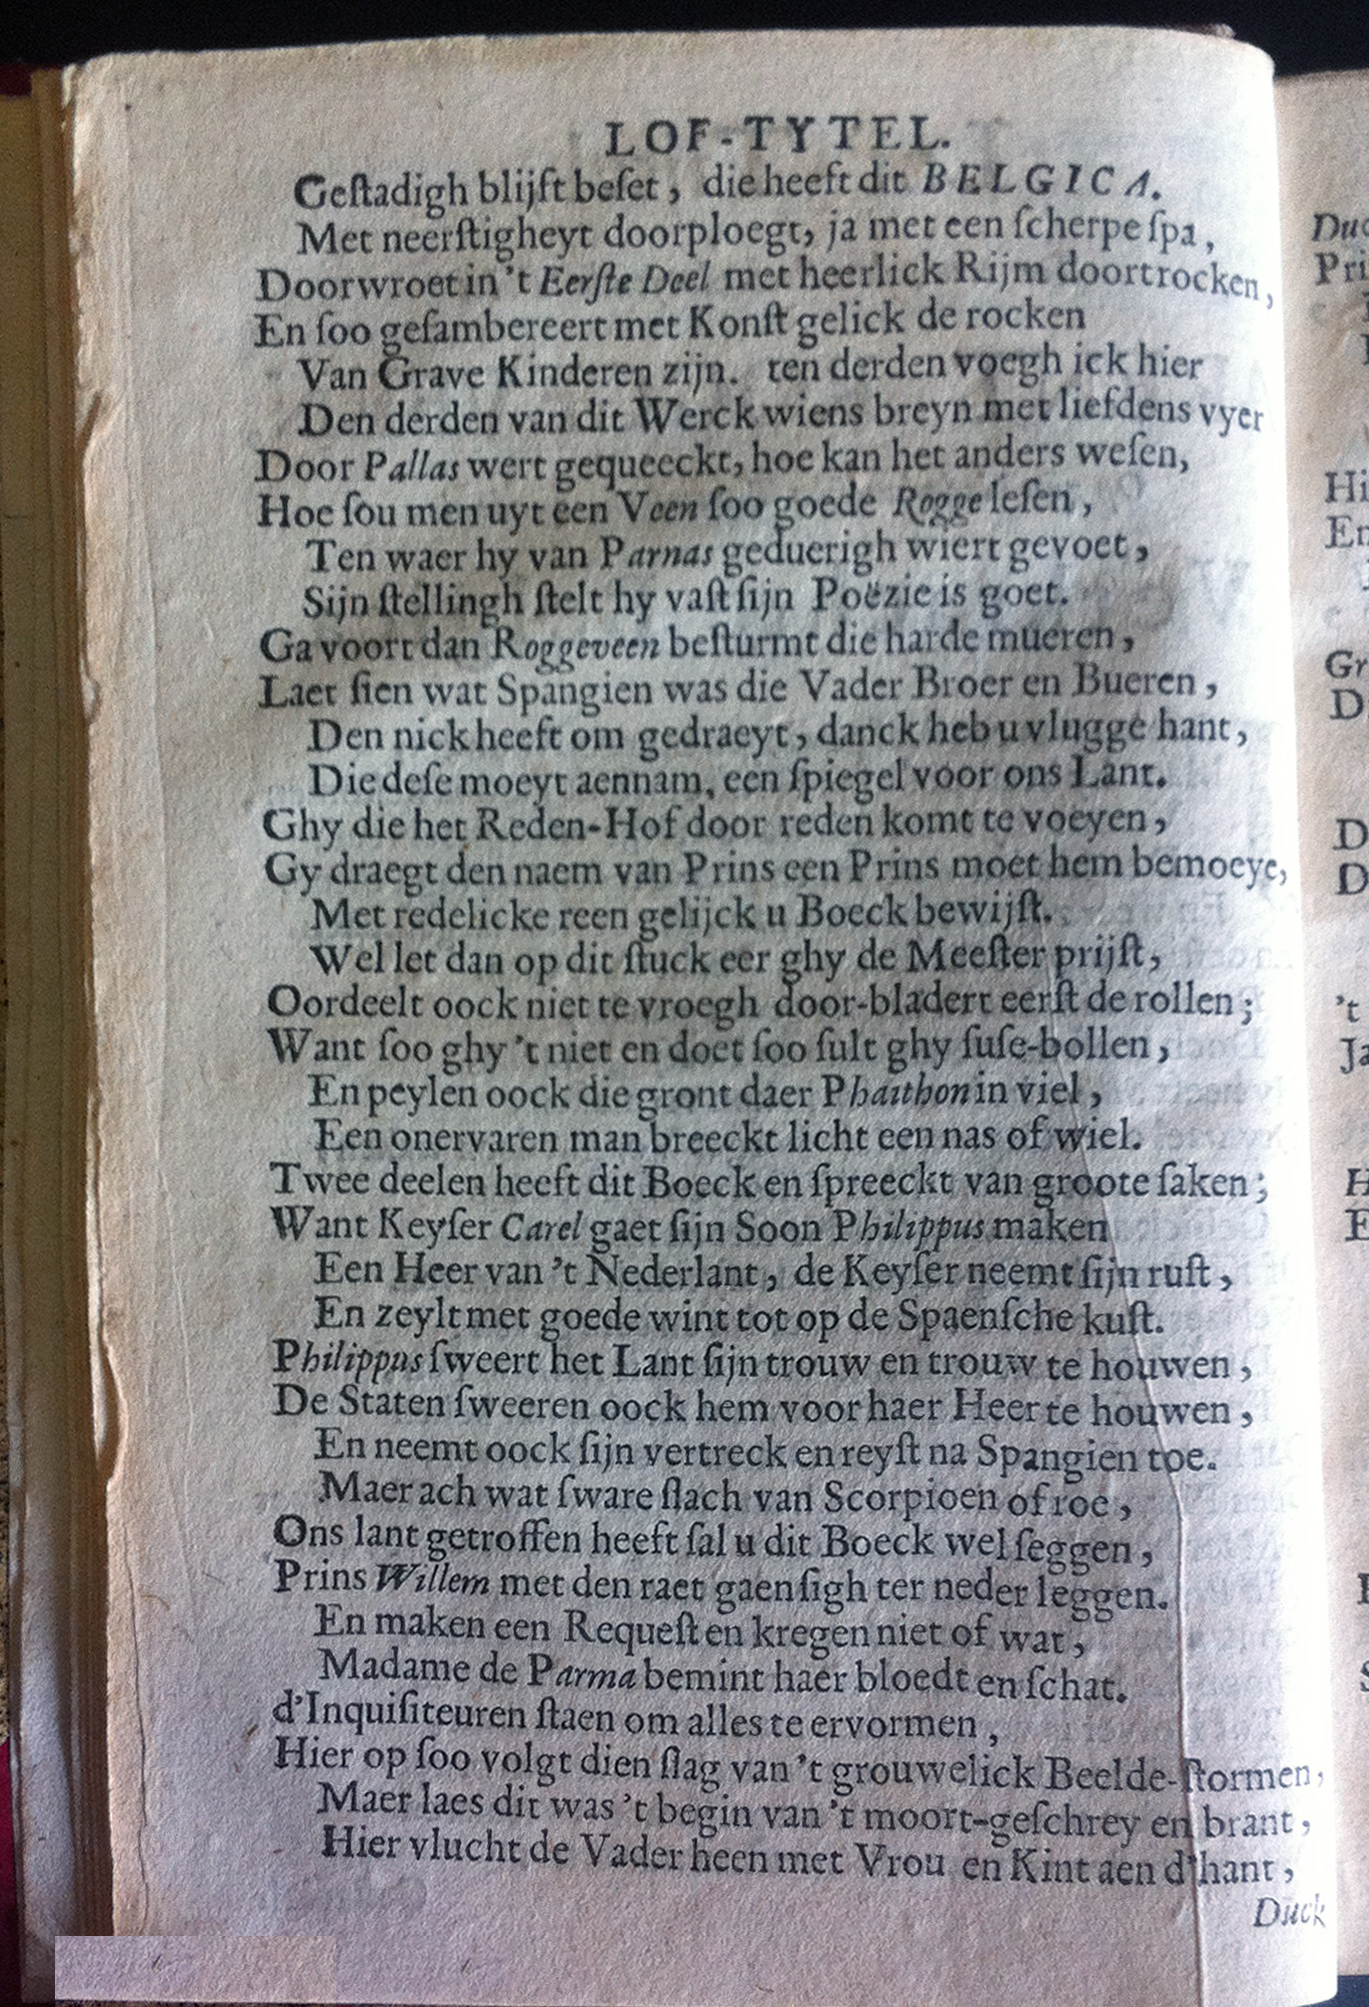 LOF-TYTEL.
Geſtadigh blijft beſet, die heeft dit BELGICA.
Met neerſtigheyt doorploegt, ja met een ſcherpe ſpa,
Doorwroet in 't Eerſte Deel met heerlick Rijm doortrocken,
En ſoo geſambereert met Konſt gelick de rocken
Van Grave Kinderen zijn. ten derden voegh ick hier
Den derden van dit Werck wiens breyn met liefdens vyer
Door Pallas wert gequeeckt, hoe kan het anders weſen,
Hoe ſou men uyt een Veen ſoo goede Rogge leſen,
Ten waer hy van Parnas geduerigh wiert gevoet,
Sijn ſtellingh ſtelt hy vaſt ſijn Poëzie is goet.
Ga voort dan Roggeveen beſturmt die harde mueren,
Laet ſien wat Spangien was die Vader Broer en Bueren,
Den nick heeft om gedraeyt, danck heb u vlugge hant,
Die deſe moeyt aennam, een ſpiegel voor ons Lant.
Ghy die het Reden-Hof door reden komt te voeyen,
Gy draegt den naem van Prins een Prins moet hem bemoeyē,
Met redelicke reen gelijck u Boeck bewijſt.
Wel let dan op dit ſtuck eer ghy de Meeſter prijſt,
Oordeelt oock niet te vroegh door-bladert eerſt de rollen;
Want ſoo ghy 't niet en doet ſoo ſult ghy ſuſe-bollen,
En peylen oock die gront daer Phaithon in viel,
Een onervaren man breeckt licht een nas of wiel.
Twee deelen heeft dit Boeck en ſpreeckt van groote ſaken;
Want Keyſer Carel gaet ſijn Soon Philippus maken
Een Heer van 't Nederlant, de Keyſer neemt ſijn ruſt,
En zeylt met goede wint tot op de Spaenſche kuſt.
Philippus ſweert het Lant ſijn trouw en trouw te houwen,
De Staten ſweeren oock hem voor haer Heer te houwen,
En neemt oock ſijn vertreck en reyſt na Spangien toe.
Maer ach wat ſware ſlach van Scorpioen of roe,
Ons lant getroffen heeft ſal u dit Boeck wel ſeggen,
Prins Willem met den raet gaen ſigh ter neder leggen.
En maken een Requeſt en kregen niet of wat,
Madame de Parma bemint haer bloedt en ſchat.
d'Inquiſiteuren ſtaen om alles te ervormen,
Hier op ſoo volgt dien ſlag van 't grouwelick Beelde-ſtormen,
Maer laes dit was 't begin van 't moort-geſchrey en brant,
Hier vlucht de Vader heen met Vrou en Kint aen d'hant,
Duck